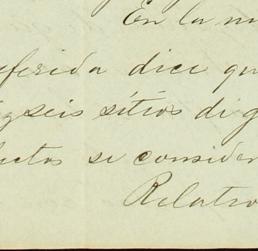 En la m
eferida dice qu
z seis sitios dig
uctos se consider
Relativo